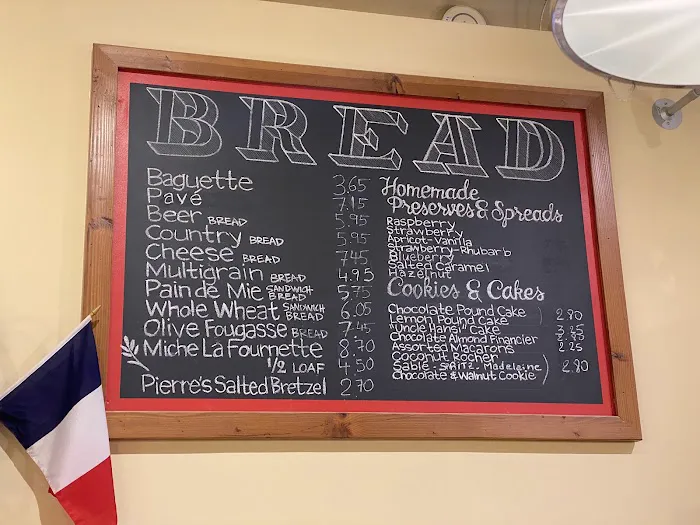 BREAD
Baguette 3.65
Pavé 7.15
Beer BREAD 5.95
Country BREAD 5.95
Cheese BREAD 7.45
Multigrain BREAD 4.95
Pain de Mie SANDWICH BREAD 5.75
Whole Wheat SANDWICH BREAD 6.05
Olive Fougasse BREAD 7.45
Miche La Fournette 8.70
1/2 LOAF 4.50
Pierre's Salted Bretzel 2.70
Homemade
Preserves & Spreads
Raspberry
Strawberry
Apricot-Vanilla
Strawberry-Rhubarb
Blueberry
Salted Caramel
Hazelnut
Cookies & Cakes
Chocolate Pound Cake
Lemon Pound Cake 2.80
"Uncle Hansi" Cake 3.25
Chocolate Almond Financier
Assorted Macarons 2.25
Coconut Rocher
Sablé - SPRITZ - Madeleine 2.80
Chocolate & Walnut Cookie